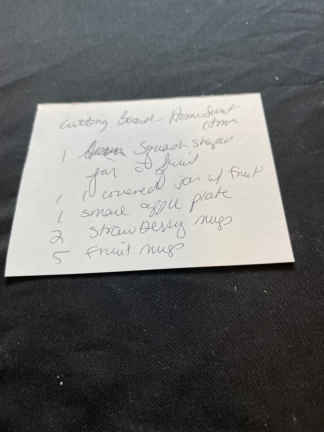 Cutting Board
1 Squash shaped
jar of fruit
1 1 covered jar of fruit
1 small apple plate
2 Strawberry mugs
5 Fruit mugs